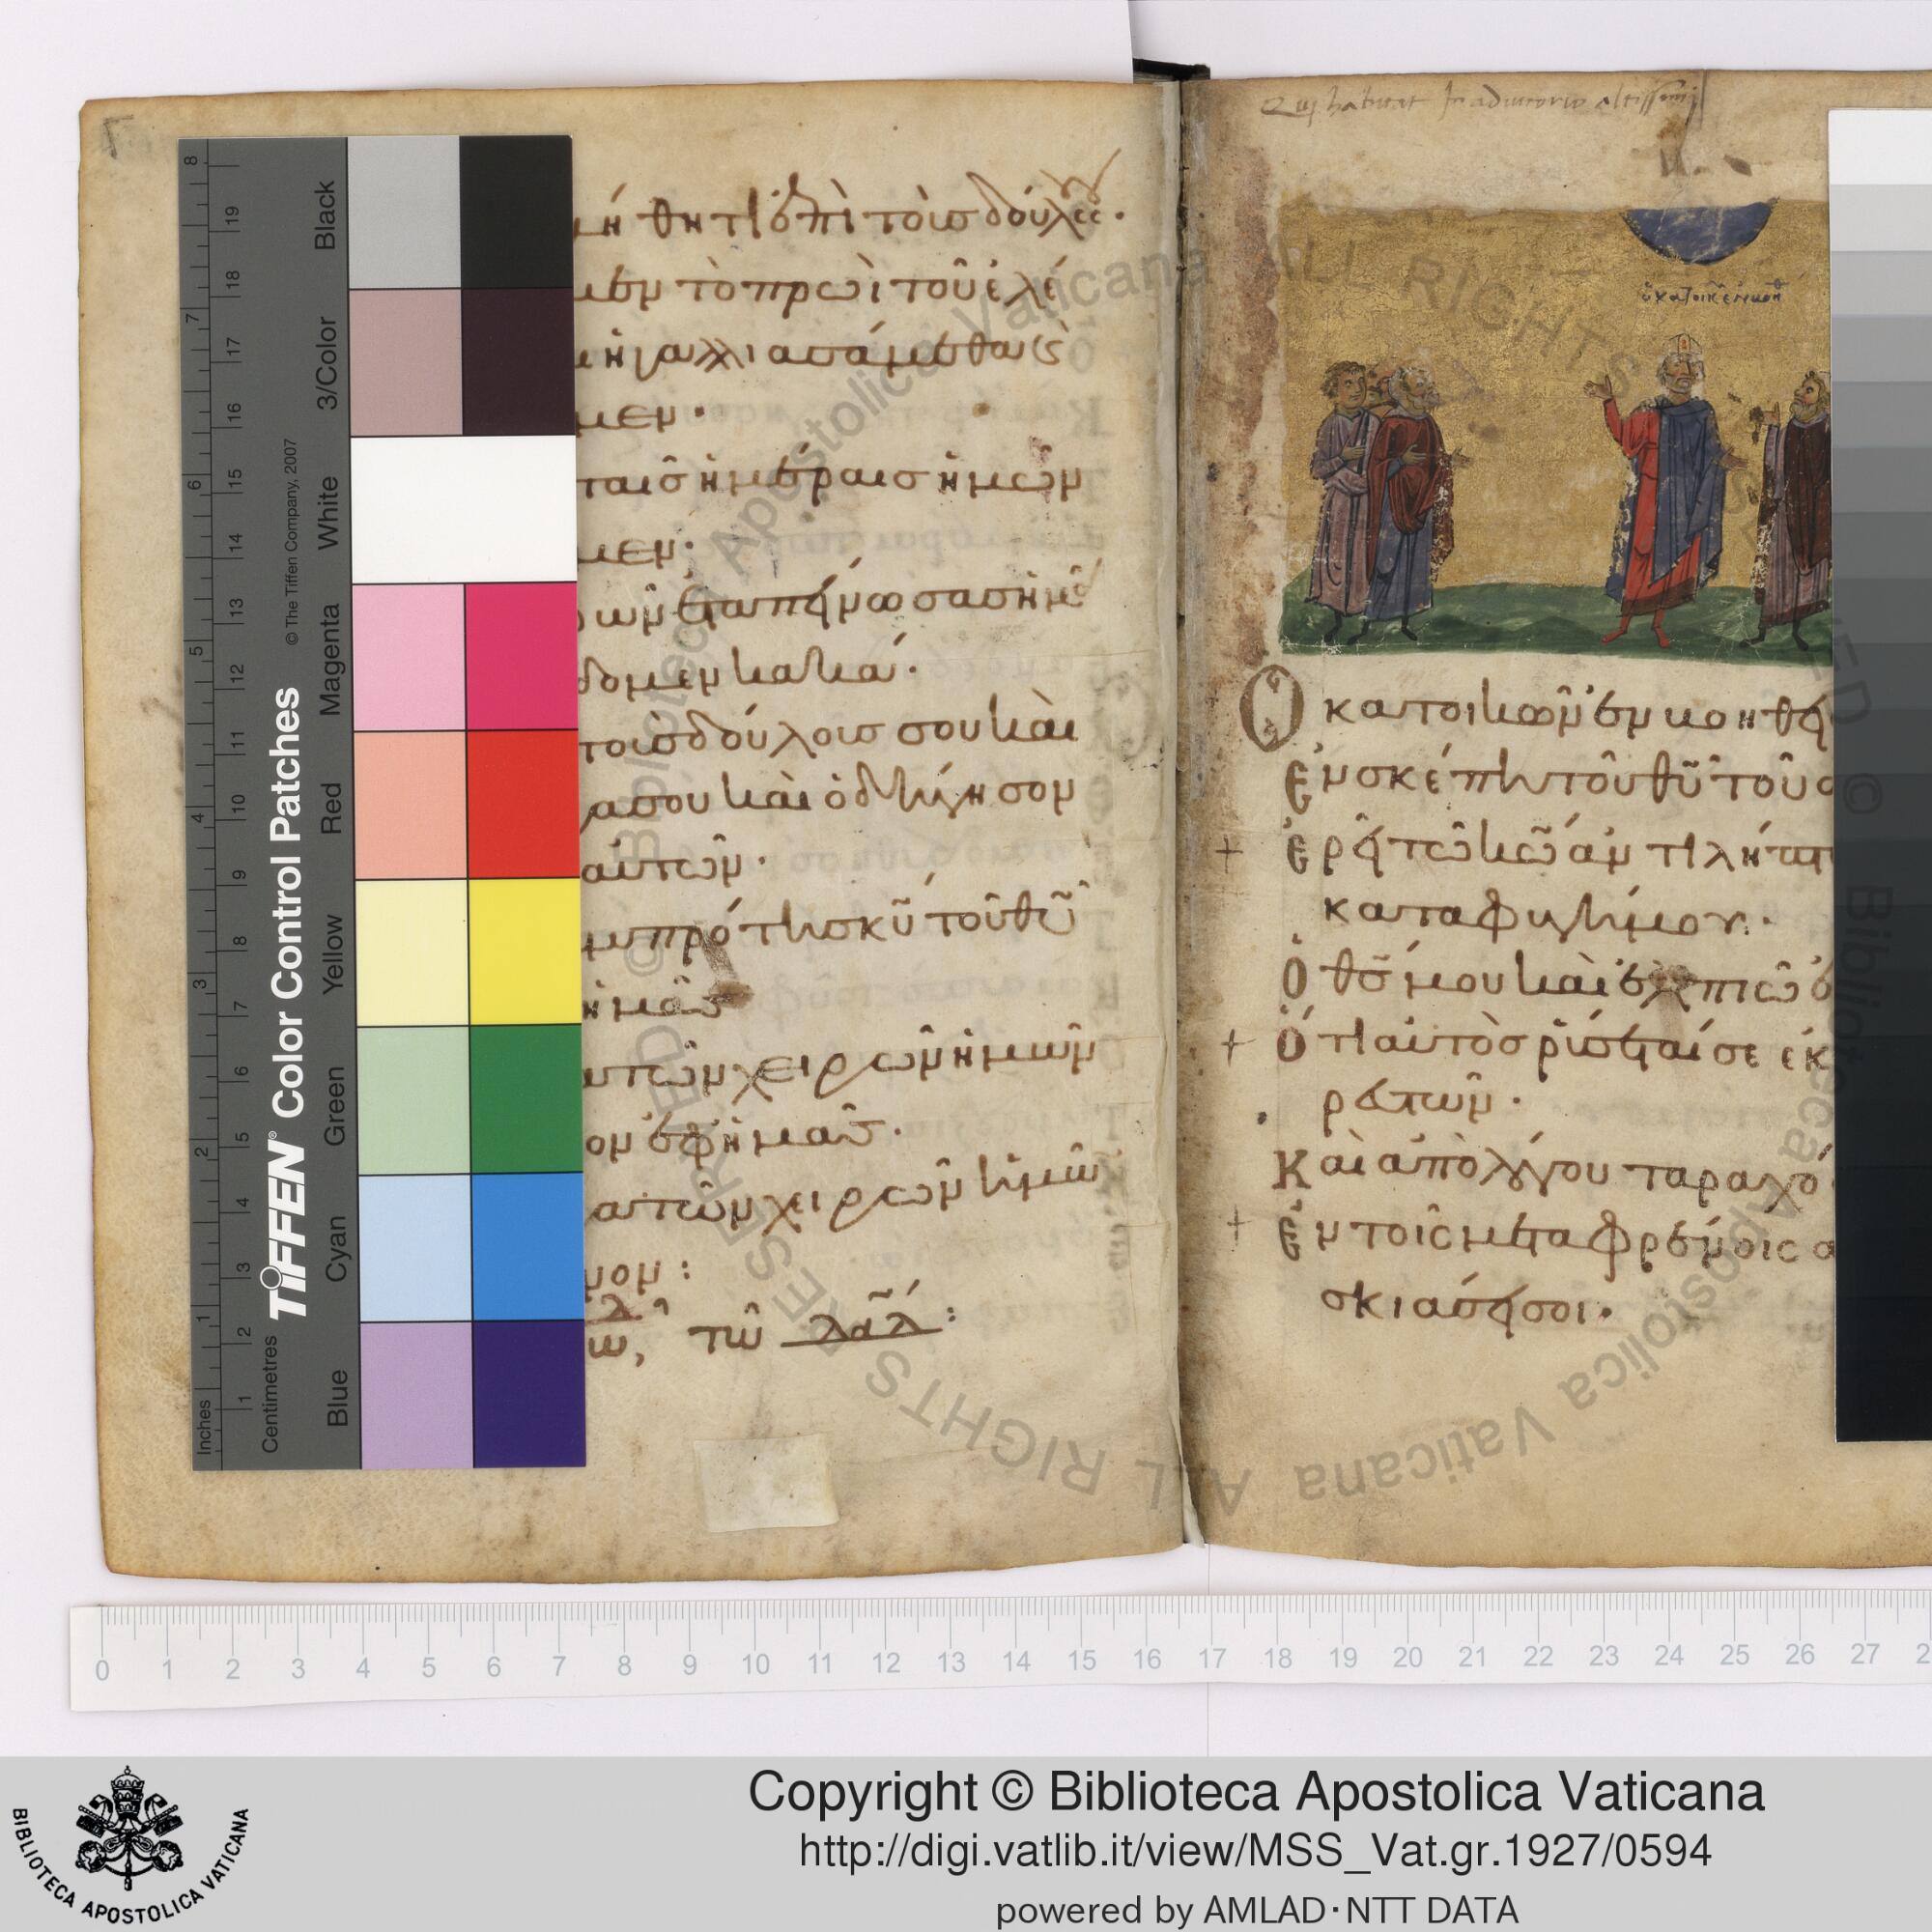 μήθητι ἐπὶ τοῖσ δούλοις·
μεν τὸ πρωῒ τοῦ ἐλέ
ἠγαλλιασάμεθα κς
μεν·
ταῖσ ἡμέραισ ἡμῶν
μεν·
ὧν ἐταπείνωσασ ἡμᾶς
δομεν κακά·
τοὺσ δούλουσ σου καὶ
α σου καὶ ὁδήγησον
αὐτῶν·
πρότησ κῦ τοῦ θῦ
ἡμᾶσ
τῶν χειρῶν ἡμῶν
ον ἐφ ἡμᾶσ·
τῶν χειρῶν ἡμῶν
νον:
τῶ
Qui habitat In adiutorio altissimi
ὁ κατοικῶν
Ὁ κατοικῶν ἐν βοηθεί
Ἐν σκέπη τοῦ θῦ τοῦ ο
+ Ἐρεῖ τῶ κῶ ἀντιλήπτ
καταφυγήμου·
Ὁ θσ μου καὶ ἐλπιῶ ἐ
+ Ὅτι αὐτὸσ ῥύσεταί σε ἐκ
ρευτῶν·
Καὶ ἀπὸ λόγου ταραχώ
+ Ἐν τοῖς μεταφρένοις α
σκιάσει σοι·
TIFFEN® Color Control Patches
© The Tiffen Company, 2007
Inches
1 2 3 4 5 6 7 8
Centimetres
1 2 3 4 5 6 7 8 9 10 11 12 13 14 15 16 17 18 19
Blue Cyan Green Yellow Red Magenta White 3/Color Black
© Biblioteca Apostolica Vaticana ALL RIGHTS RESERVED © Biblioteca Apostolica Vaticana ALL RIGHTS RESERVED
0 1 2 3 4 5 6 7 8 9 10 11 12 13 14 15 16 17 18 19 20 21 22 23 24 25 26 27
BIBLIOTECA APOSTOLICA VATICANA
Copyright © Biblioteca Apostolica Vaticana
http://digi.vatlib.it/view/MSS_Vat.gr.1927/0594
powered by AMLAD·NTT DATA